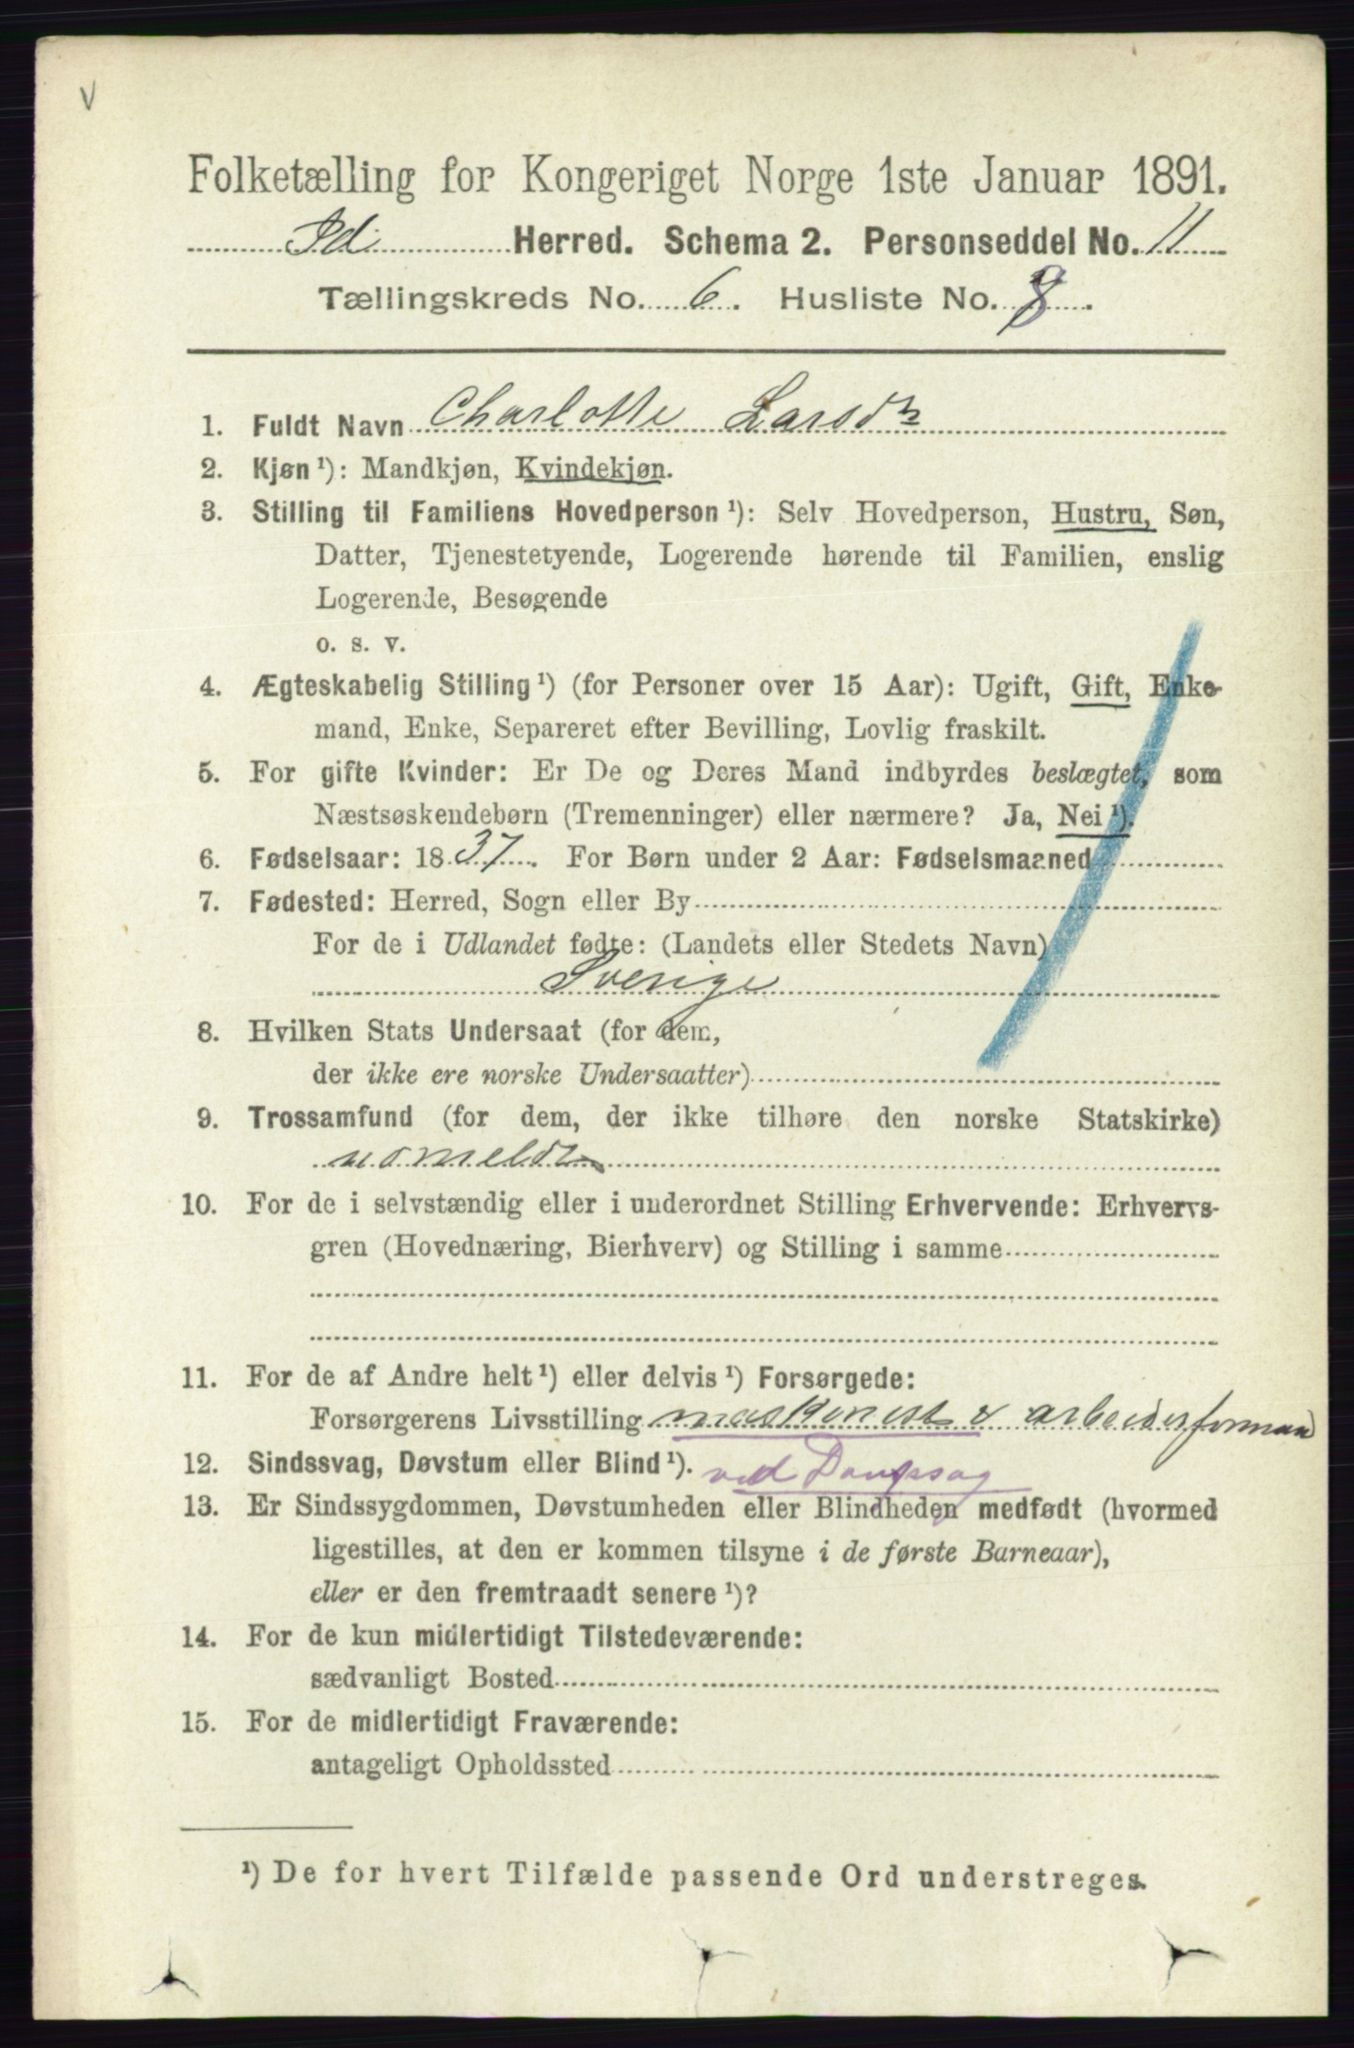 V
Folketælling for Kongeriget Norge 1ste Januar 1891.
Id Herred. Schema 2. Personseddel No. 11
Tællingskreds No. 6. Husliste No. 8.
1. Fuldt Navn Charlotte Larsdr
2. Kjøn ¹): Mandkjøn, Kvindekjøn.
3. Stilling til Familiens Hovedperson ¹): Selv Hovedperson, Hustru, Søn,
Datter, Tjenestetyende, Logerende hørende til Familien, enslig
Logerende, Besøgende
o. s. v.
4. Ægteskabelig Stilling ¹) (for Personer over 15 Aar): Ugift, Gift, Enke-
mand, Enke, Separeret efter Bevilling, Lovlig fraskilt.
5. For gifte Kvinder: Er De og Deres Mand indbyrdes beslægtet, som
Næstsøskendebørn (Tremenninger) eller nærmere? Ja, Nei ¹).
6. Fødselsaar: 1837. For Børn under 2 Aar: Fødselsmaaned
7. Fødested: Herred, Sogn eller By
For de i Udlandet fødte: (Landets eller Stedets Navn)
Sverige
8. Hvilken Stats Undersaat (for dem,
der ikke ere norske Undersaatter)
9. Trossamfund (for dem, der ikke tilhøre den norske Statskirke)
10. For de i selvstændig eller i underordnet Stilling Erhvervende: Erhvervs-
gren (Hovednæring, Bierhverv) og Stilling i samme
11. For de af Andre helt ¹) eller delvis ¹) Forsørgede:
Forsørgerens Livsstilling maskinist & arbeiderformand
12. Sindssvag, Døvstum eller Blind ¹). ved Dampsag
13. Er Sindssygdommen, Døvstumheden eller Blindheden medfødt (hvormed
ligestilles, at den er kommen tilsyne i de første Barneaar),
eller er den fremtraadt senere ¹)?
14. For de kun midlertidigt Tilstedeværende:
sædvanligt Bosted
15. For de midlertidigt Fraværende:
antageligt Opholdssted
¹) De for hvert Tilfælde passende Ord understreges.